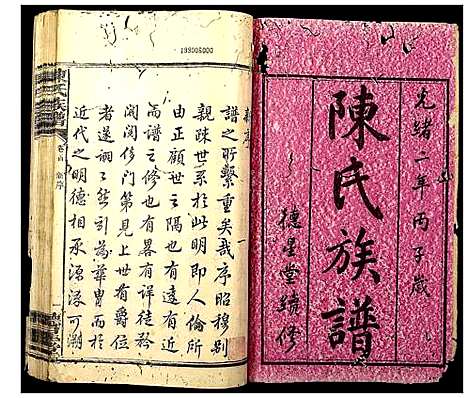 光緒二年丙子歲
陳氏族譜
德星堂續修
198008000
新序
譜之所繫重矣哉序昭穆别
親疎世系於此明即人倫所
由正顧世之隔也有遠有近
而譜之修也有畧有詳徒矜
閥閱侈門第見上世有爵位
者遂詡詡然引為華胄而於
近代之明德相承源流可溯
陳氏族譜
卷首